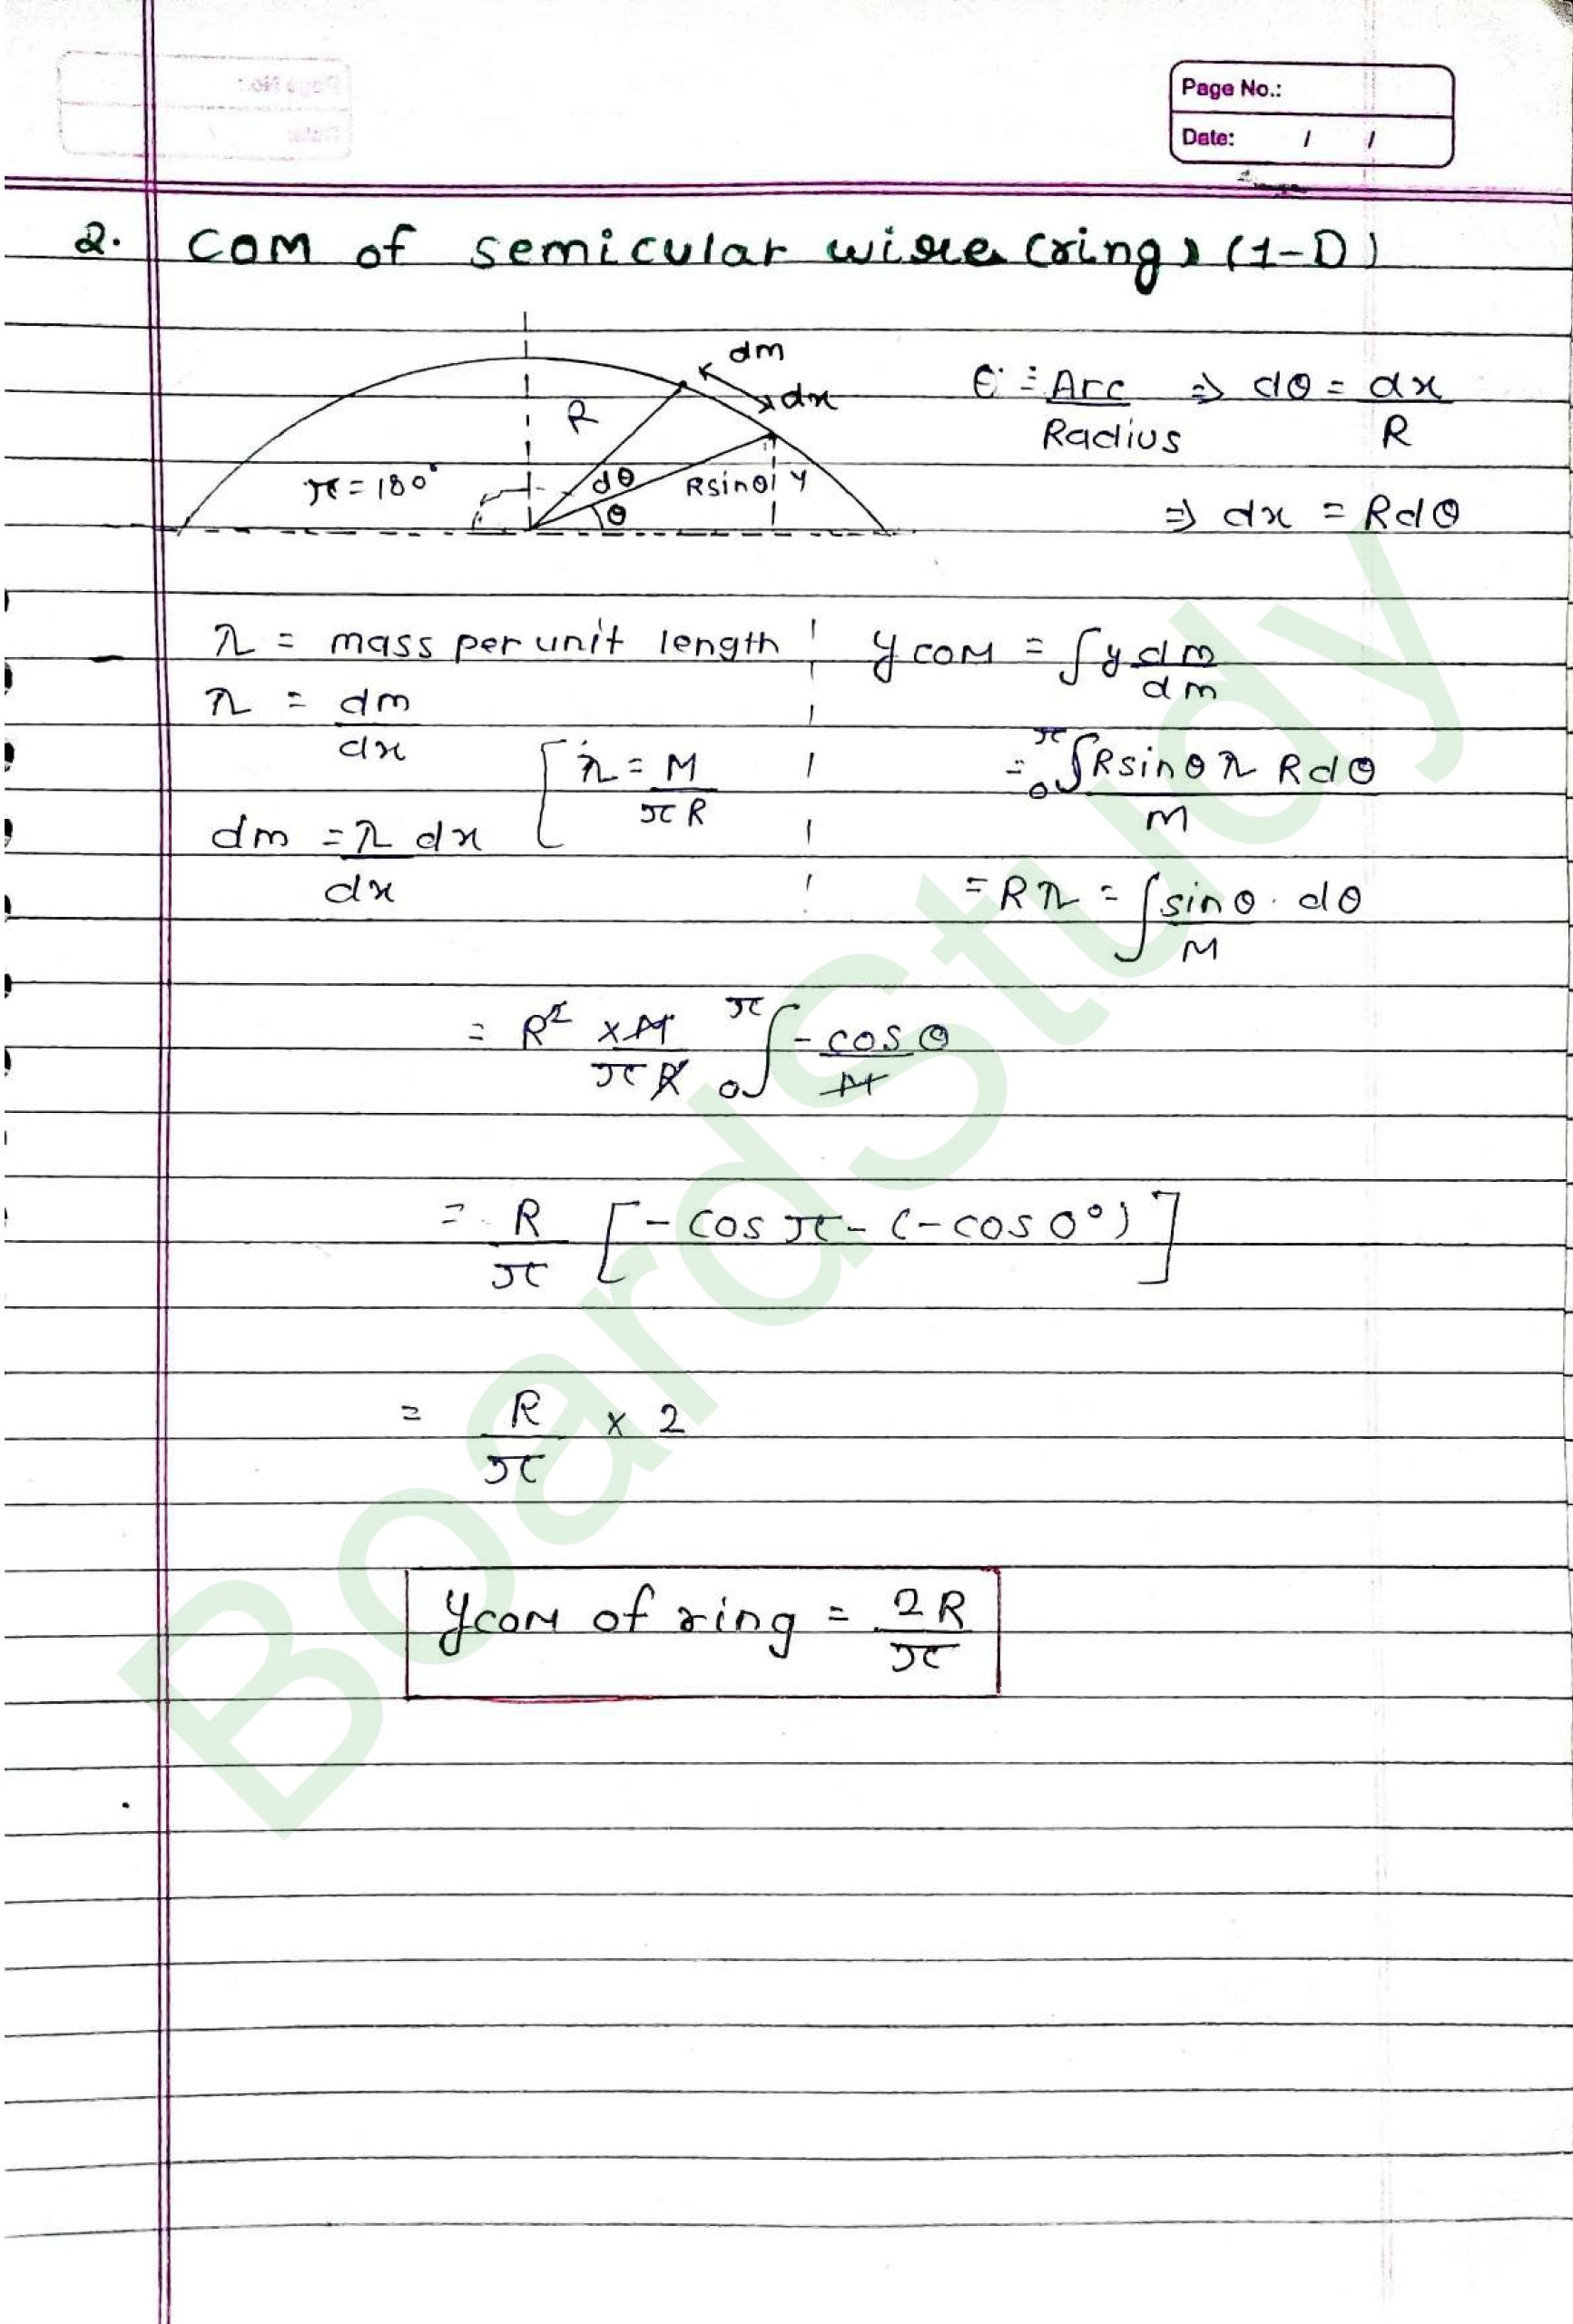 Page No.:
Date: / /
2. COM of semicular wire (ring) (1-D)
dm
dx
R
π = 180°
dθ
θ
Rsinθ y
θ = Arc / Radius ⇒ dθ = dx / R
⇒ dx = Rdθ
λ = mass per unit length
λ = dm / dx
[ λ = M / πR
dm = λ dx / dx
y COM = ∫ y dm / dm
= π ∫ 0 Rsinθ λ Rdθ / M
= Rλ = ∫ sinθ . dθ / M
= R² × M / πR π ∫ 0 - cosθ / M
= R / π [ - cos π - (- cos 0°) ]
= R / π × 2
yCOM of ring = 2R / π
BoardStudy